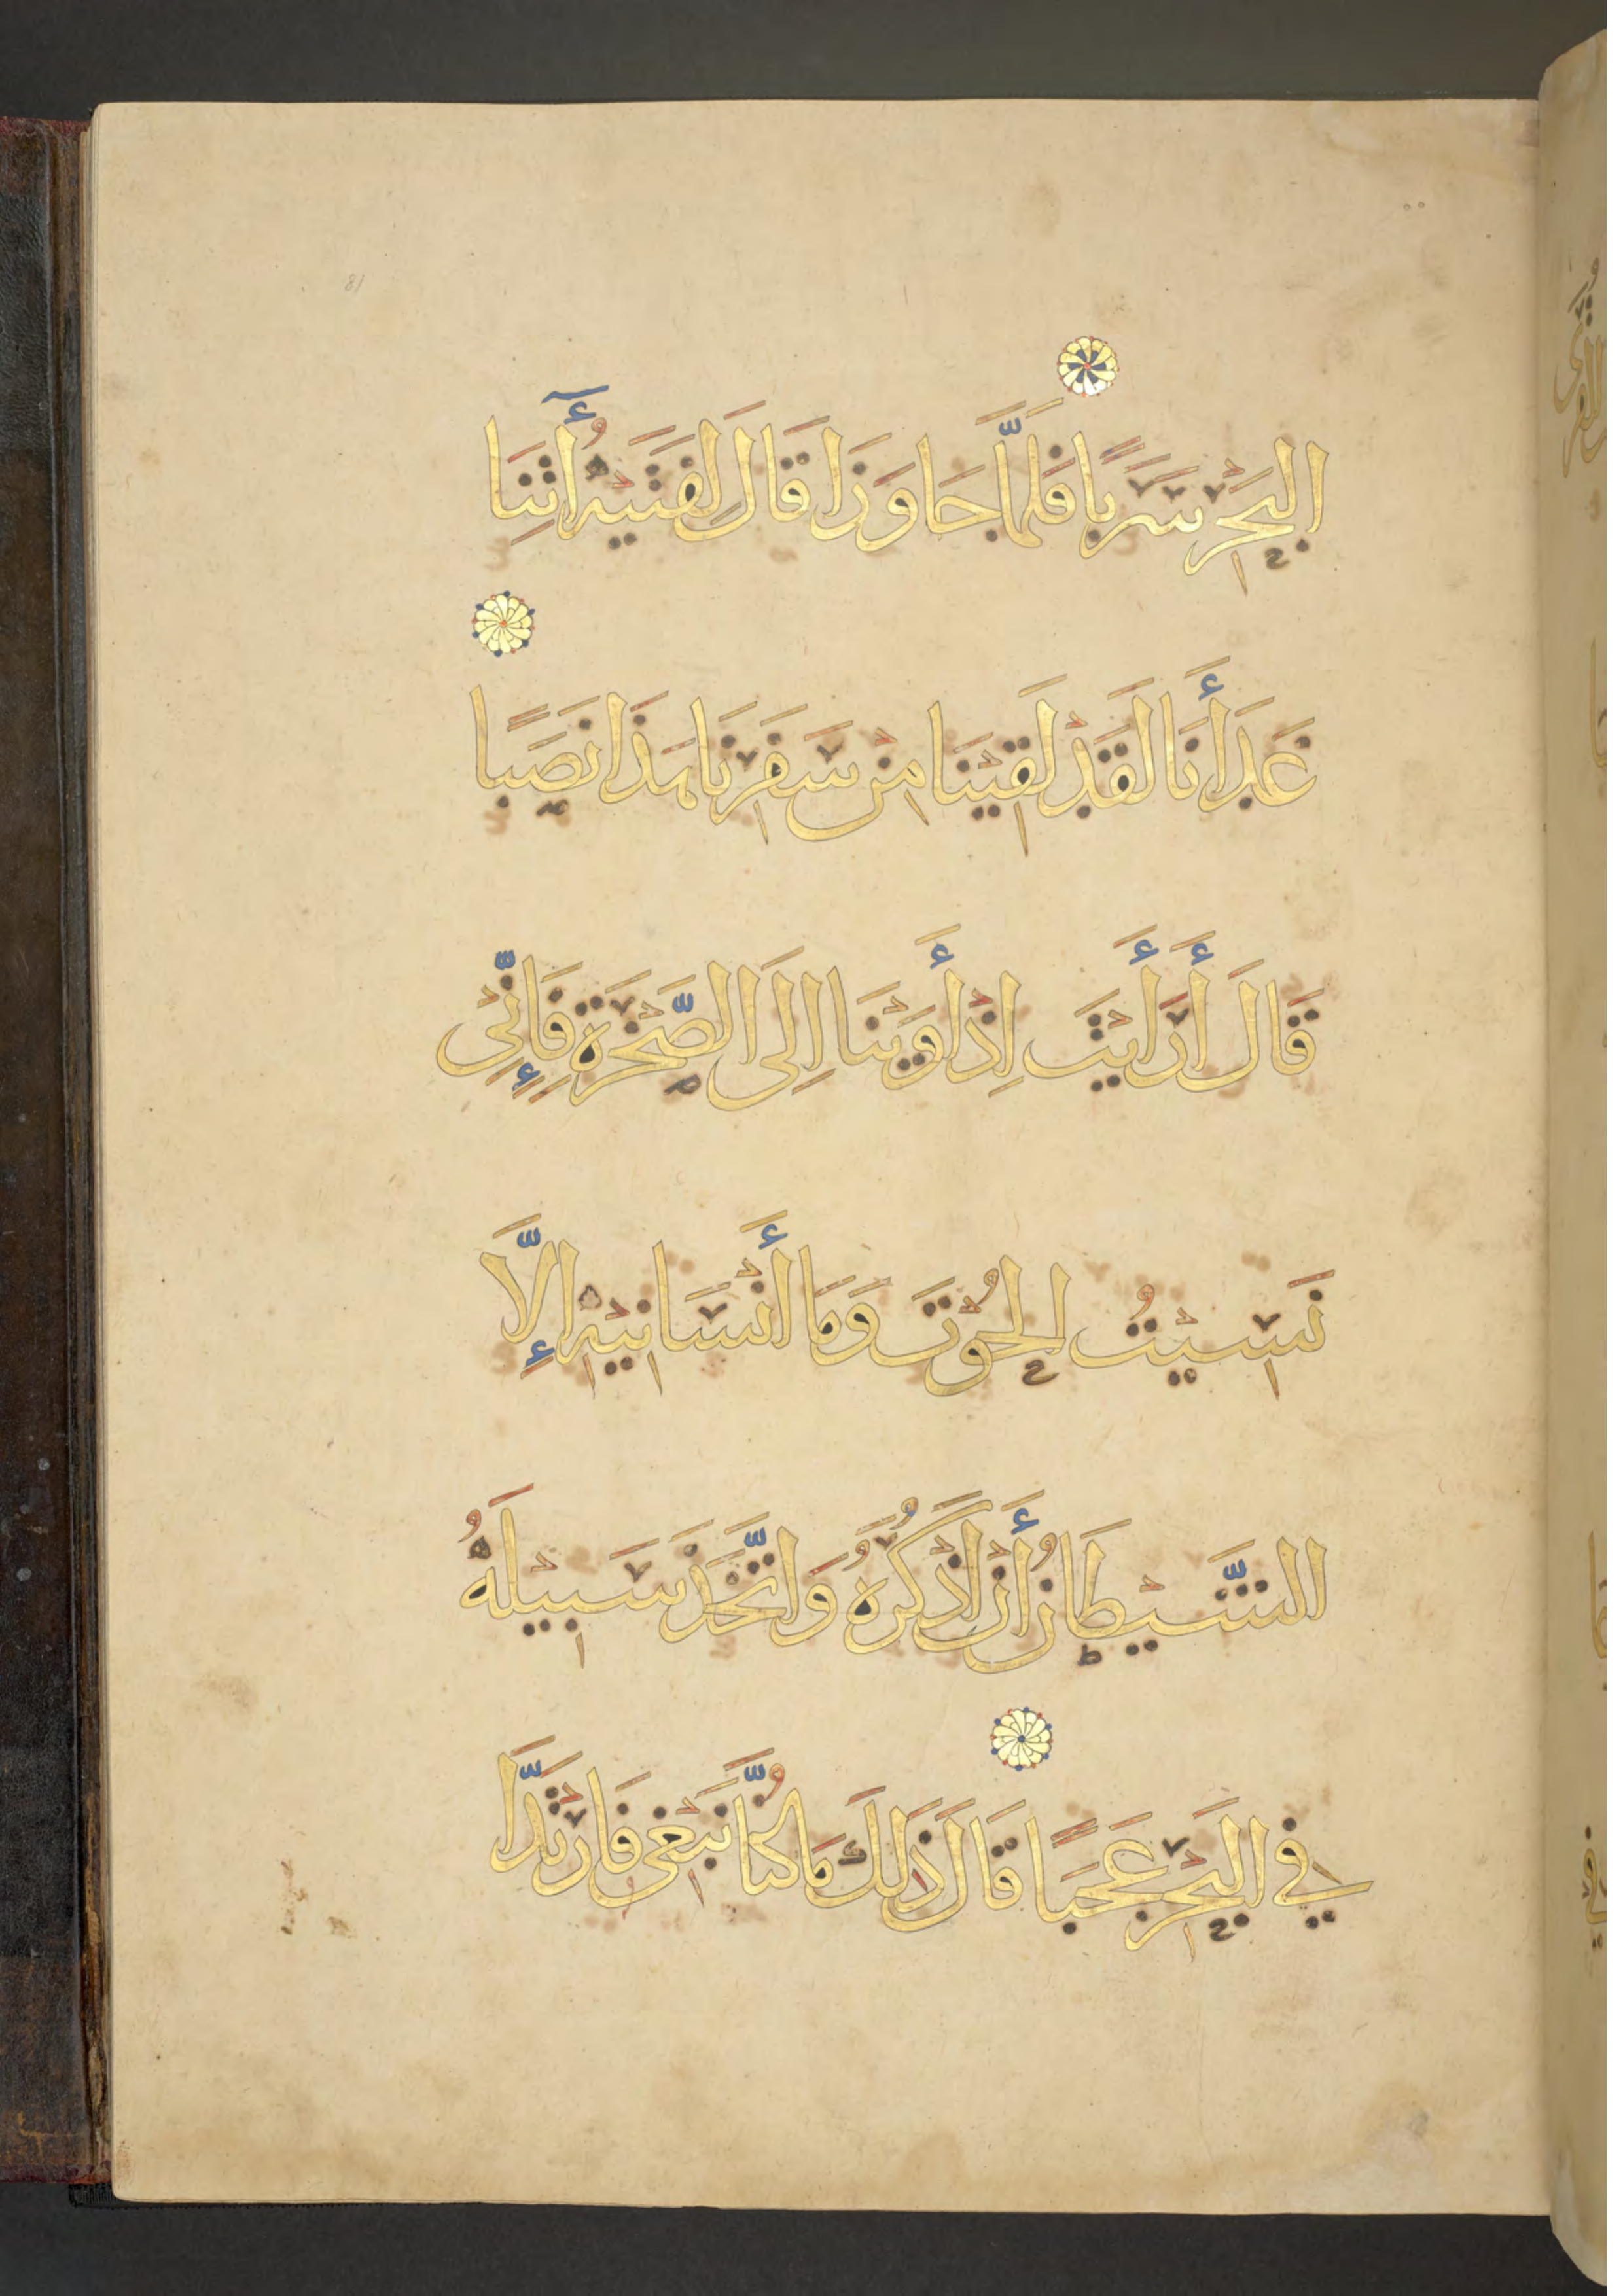 الْبَحْرِ سَرَبًا فَلَمَّا جَاوَزَا قَالَ لِفَتَىٰهُ أٰتِنَا
غَدَاۤءَنَا لَقَدْ لَقِيْنَا مِنْ سَفَرِنَا هَذَا نَصَبًا
قَالَ أَرَأَيْتَ اِذْ أَوَيْنَا اِلَى الصَّخْرَةِ فَاِنِّىْ
نَسِيْتُ الْحُوْتَ وَمَا أَنْسَانِيْهِ اِلَّا
الشَّيْطَانُ أَنْ اَذْكُرَهُ وَاتَّخَذَ سَبِيْلَهُ
فِي الْبَحْرِ عَجَبًا قَالَ ذَلِكَ مَا كُنَّا نَبْغِى فَارْتَدَّا
81